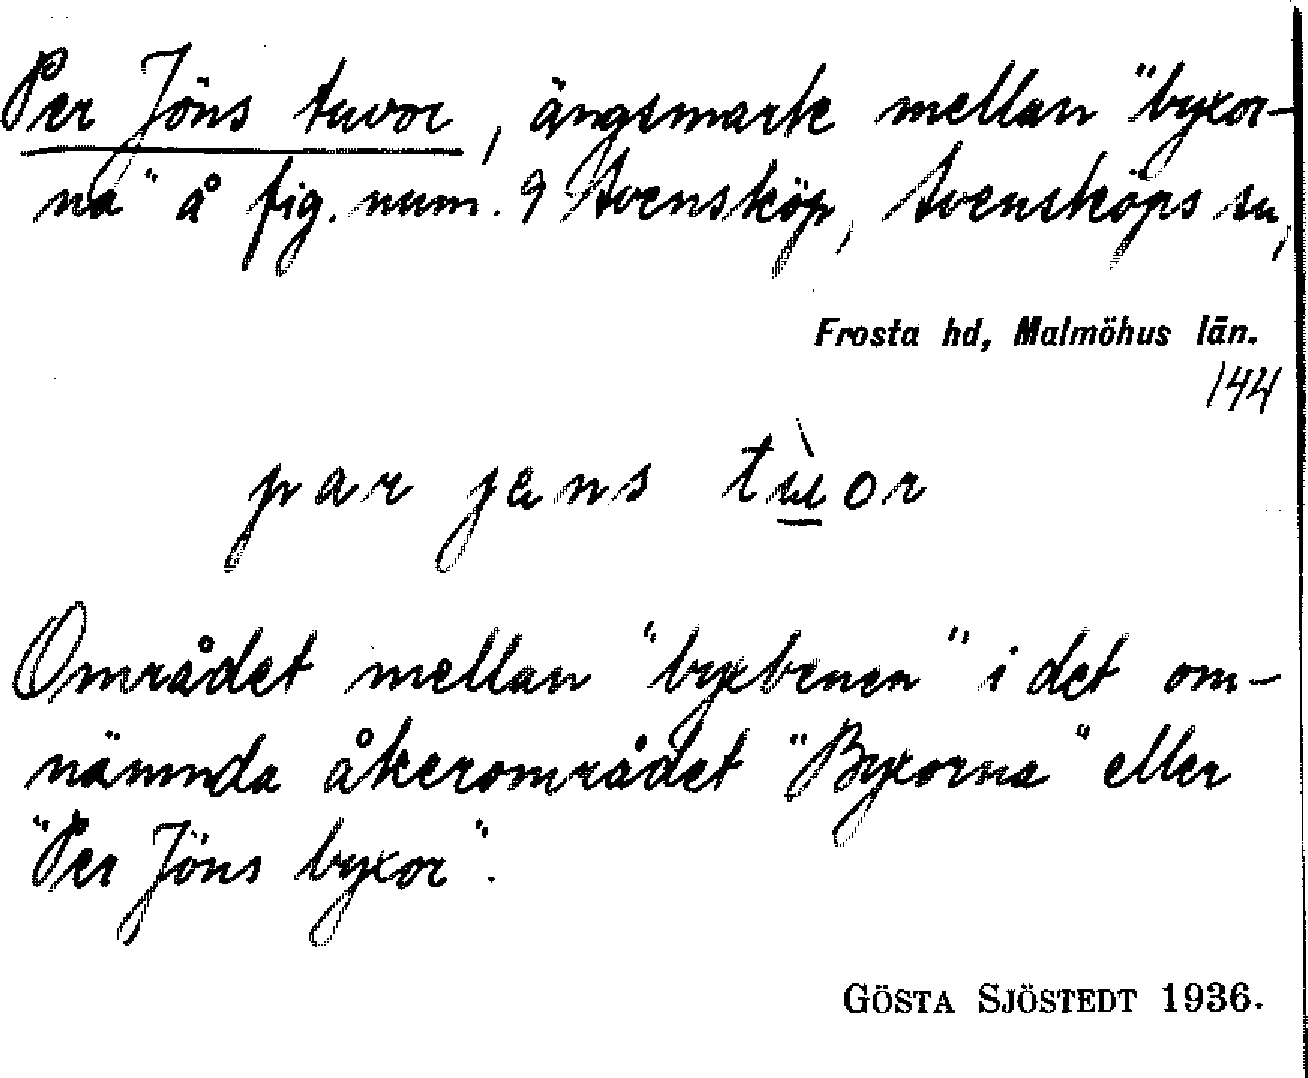 Per Jöns tuvor, ängsmark mellan "byxor-
na" å fig. num. 9 Svensköp, Svensköps sn,
Frosta hd, Malmöhus län.
144
par jens tùor
Området mellan "byxbenen" i det om-
nämnda åkerområdet "Byxorna" eller
"Per Jöns byxor".
GÖSTA SJÖSTEDT 1936.